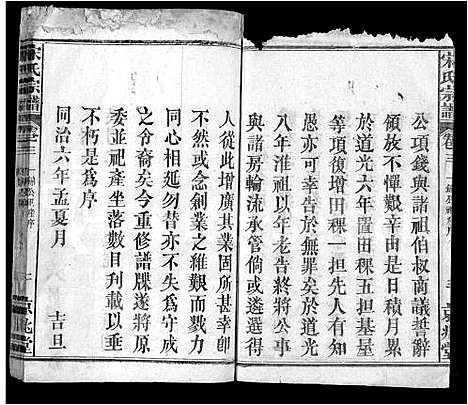 宋氏宗譜
公項錢與諸祖伯叔商議誓辭
領放不憚艱辛由是日積月累
於道光六年置田稞五担基屋
等項復增田稞一担先人有知
愚亦可幸告於無罪矣於道光
八年淮祖以年老告終將公項
與諸房輪流承管倘或遴選得
人從此增廣其業固所甚幸卽
不然亦念創業之維艱而戮力
勿替焉切勿日亦不失為守成
之令裔矣今重修譜牒遂將原
委並祀產坐落數目刋載以垂
不朽是為序
同治六年孟夏月　吉旦
宋氏宗譜
京兆堂